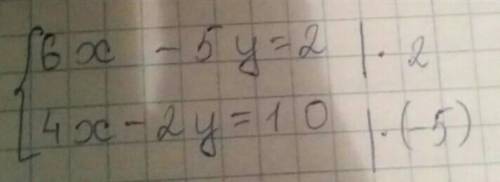 6x - 5y = 2 | · 2
4x - 2y = 10 | · (-5)